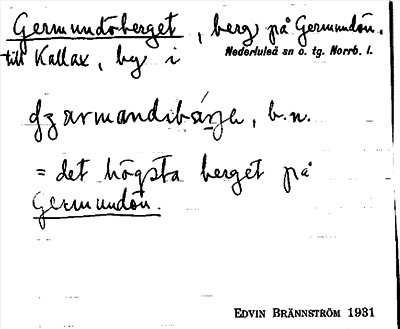 Germundöberget, berg på Germundön.
till Kallax, by i Nederluleå sn o. tg. Norrb. l.
b.n.
= det högsta berget på
Germundön.
EDVIN BRÄNNSTRÖM 1931